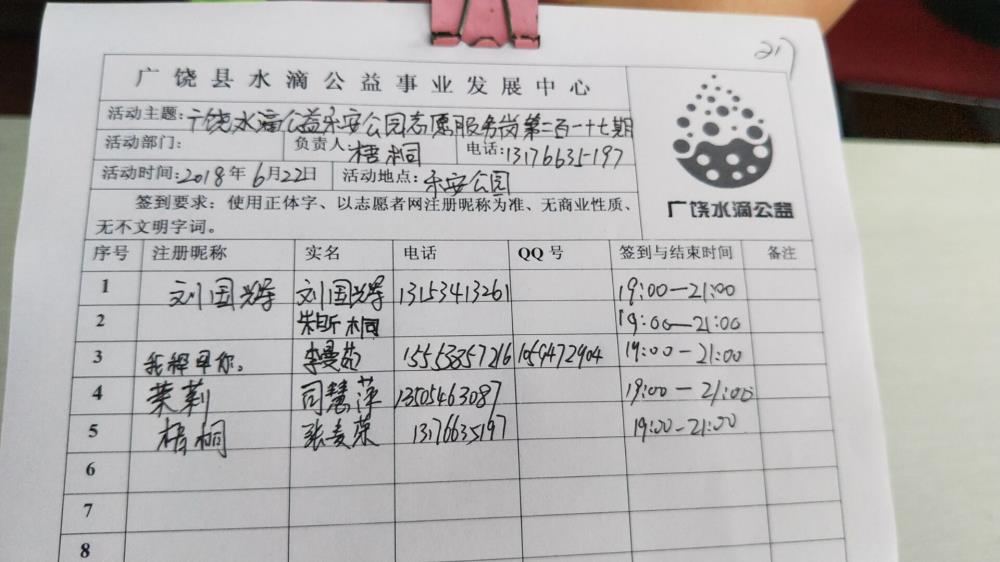 217
广饶县水滴公益事业发展中心
活动主题:广饶水滴公益永安公园志愿服务岗第二百一十七期
活动部门: 负责人:梧桐 电话:13176635197
活动时间:2018年6月22日 活动地点:永安公园
签到要求:使用正体字、以志愿者网注册昵称为准、无商业性质、
无不文明字词。
广饶水滴公益
序号 注册昵称 实名 电话 QQ号 签到与结束时间 备注
1 刘国辉 刘国辉 13153413261 19:00-21:00
2 朱昕桐 19:00-21:00
3 李曼茹 15553857216 1059472904 19:00-21:00
4 茉莉 司慧萍 13505463087 19:00-21:00
5 梧桐 张麦荣 13176635197 19:00-21:00
6
7
8